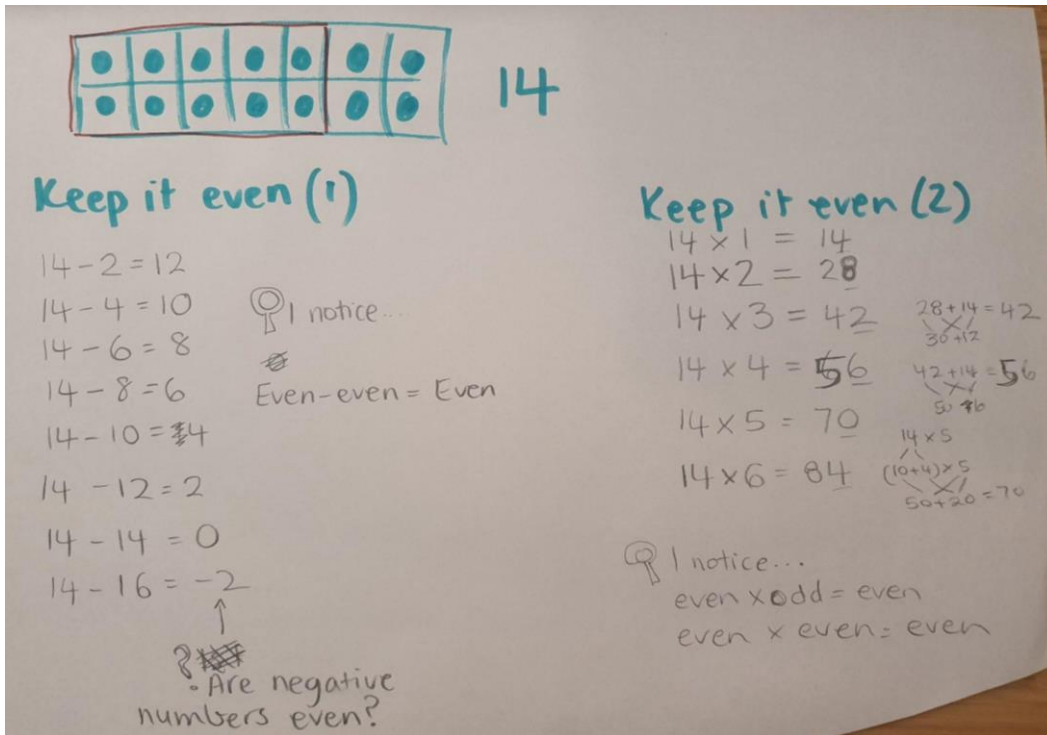 14
Keep it even (1)
14 - 2 = 12
14 - 4 = 10
14 - 6 = 8
14 - 8 = 6
14 - 10 = 4
14 - 12 = 2
14 - 14 = 0
14 - 16 = -2
? Are negative
numbers even?
I notice...
Even - even = Even
Keep it even (2)
14 × 1 = 14
14 × 2 = 28
14 × 3 = 42
14 × 4 = 56
14 × 5 = 70
14 × 6 = 84
28 + 14 = 42
30 + 12
42 + 14 = 56
50 + 6
14 × 5
(10 + 4) × 5
50 + 20 = 70
I notice...
even × odd = even
even × even = even